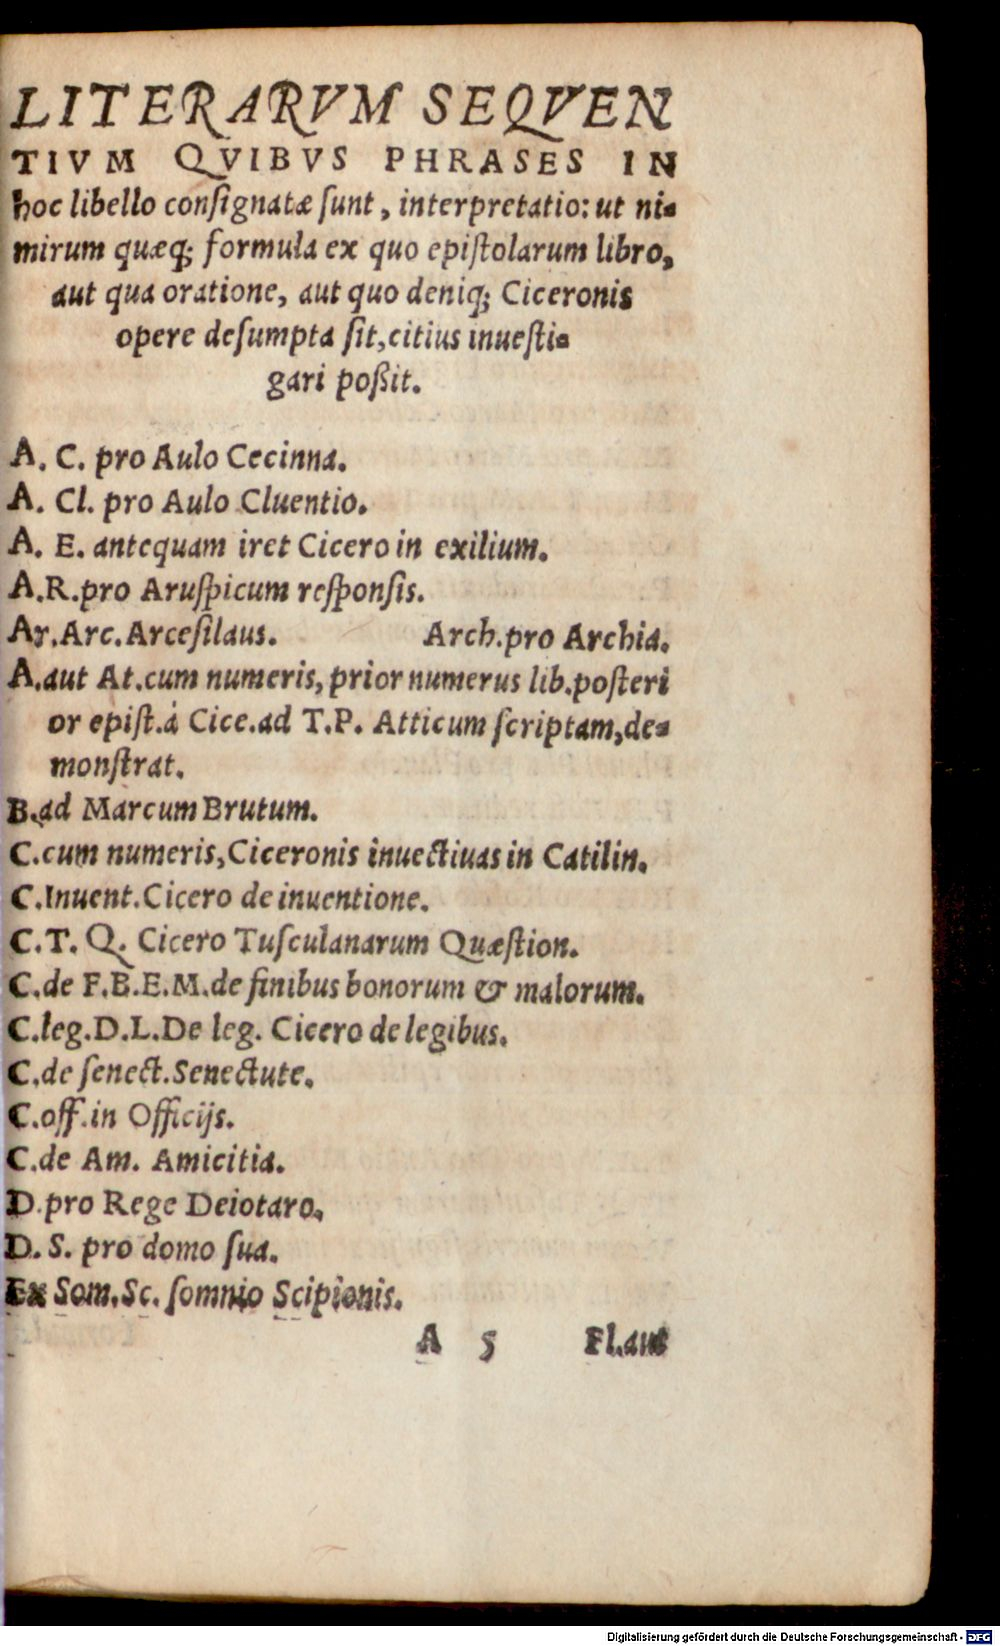 LITERARVM SEQVEN
TIVM QVIBVS PHRASES IN
hoc libello conſignatæ ſunt, interpretatio: ut ni-
mirum quæq; formula ex quo epiſtolarum libro,
aut qua oratione, aut quo deniq; Ciceronis
opere deſumpta ſit, citius inueſti-
gari poßit.
A. C. pro Aulo Cecinna.
A. Cl. pro Aulo Cluentio.
A. E. antequam iret Cicero in exilium.
A.R.pro Aruſpicum reſponſis.
Ar.Arc.Arceſilaus. Arch.pro Archia.
A.aut At.cum numeris, prior numerus lib.poſteri
or epiſt.à Cice.ad T.P. Atticum ſcriptam,de-
monſtrat.
B.ad Marcum Brutum.
C.cum numeris,Ciceronis inuectiuas in Catilin.
C.Inuent.Cicero de inuentione.
C.T. Q. Cicero Tuſculanarum Quæſtion.
C.de F.B.E.M.de finibus bonorum & malorum.
C.leg.D.L.De leg. Cicero de legibus.
C.de ſenect.Senectute.
C.off.in Officijs.
C.de Am. Amicitia.
D.pro Rege Deiotaro.
D. S. pro domo ſua.
Ex Som.Sc. ſomnio Scipionis.
A 5 Fl.aut
Digitalisierung gefördert durch die Deutsche Forschungsgemeinschaft - DFG